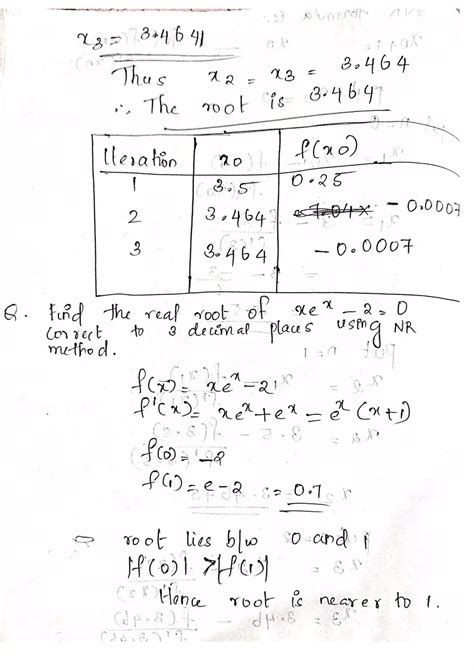 x3 = 3.4641
Thus x2 = x3 = 3.464
∴ The root is 3.464
Iteration x0 f(x0)
1 3.5 0.25
2 3.464 - 0.0007
3 3.464 - 0.0007
Q. Find the real root of xe^x - 2 = 0
correct to 3 decimal places using NR
method.
f(x) = xe^x - 2
f'(x) = xe^x + e^x = e^x (x+1)
f(0) = -2
f(1) = e - 2 = 0.7
⇒ root lies b/w 0 and 1
|f(0)| > |f(1)|
Hence root is nearer to 1.